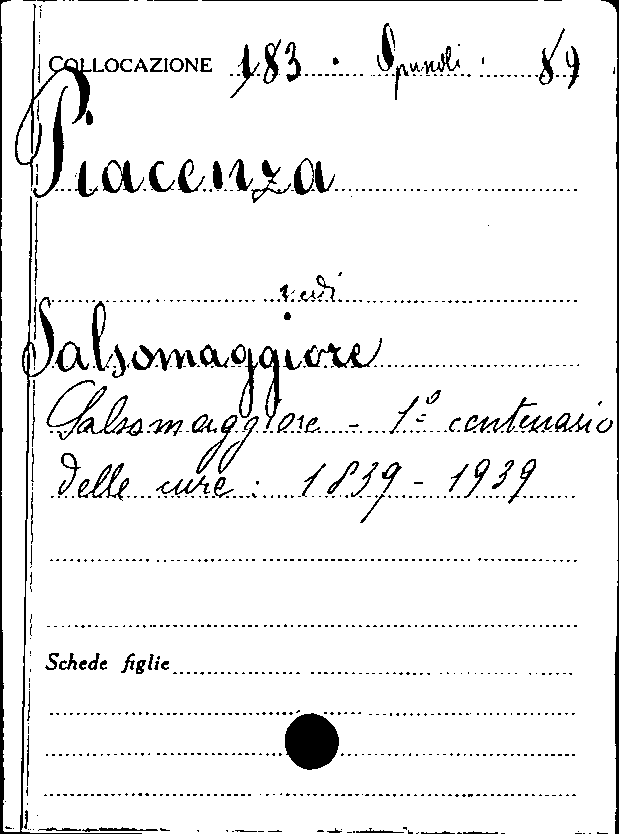 COLLOCAZIONE 183 . Opuscoli . 89
Piacenza
vedi
Salsomaggiore
Salsomaggiore - 1º centenario
delle cure : 1839 - 1939
Schede figlie